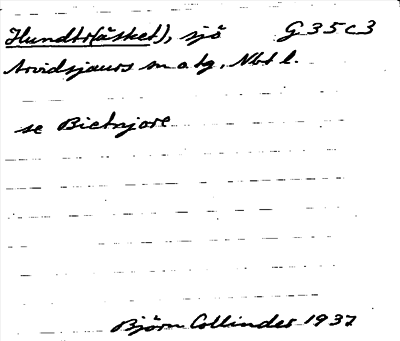 Hundtr(äsket), sjö G 35 c 3
Arvidsjaurs sn o tg, Nbt l.
se Bietnjare
Björn Collinder 1937